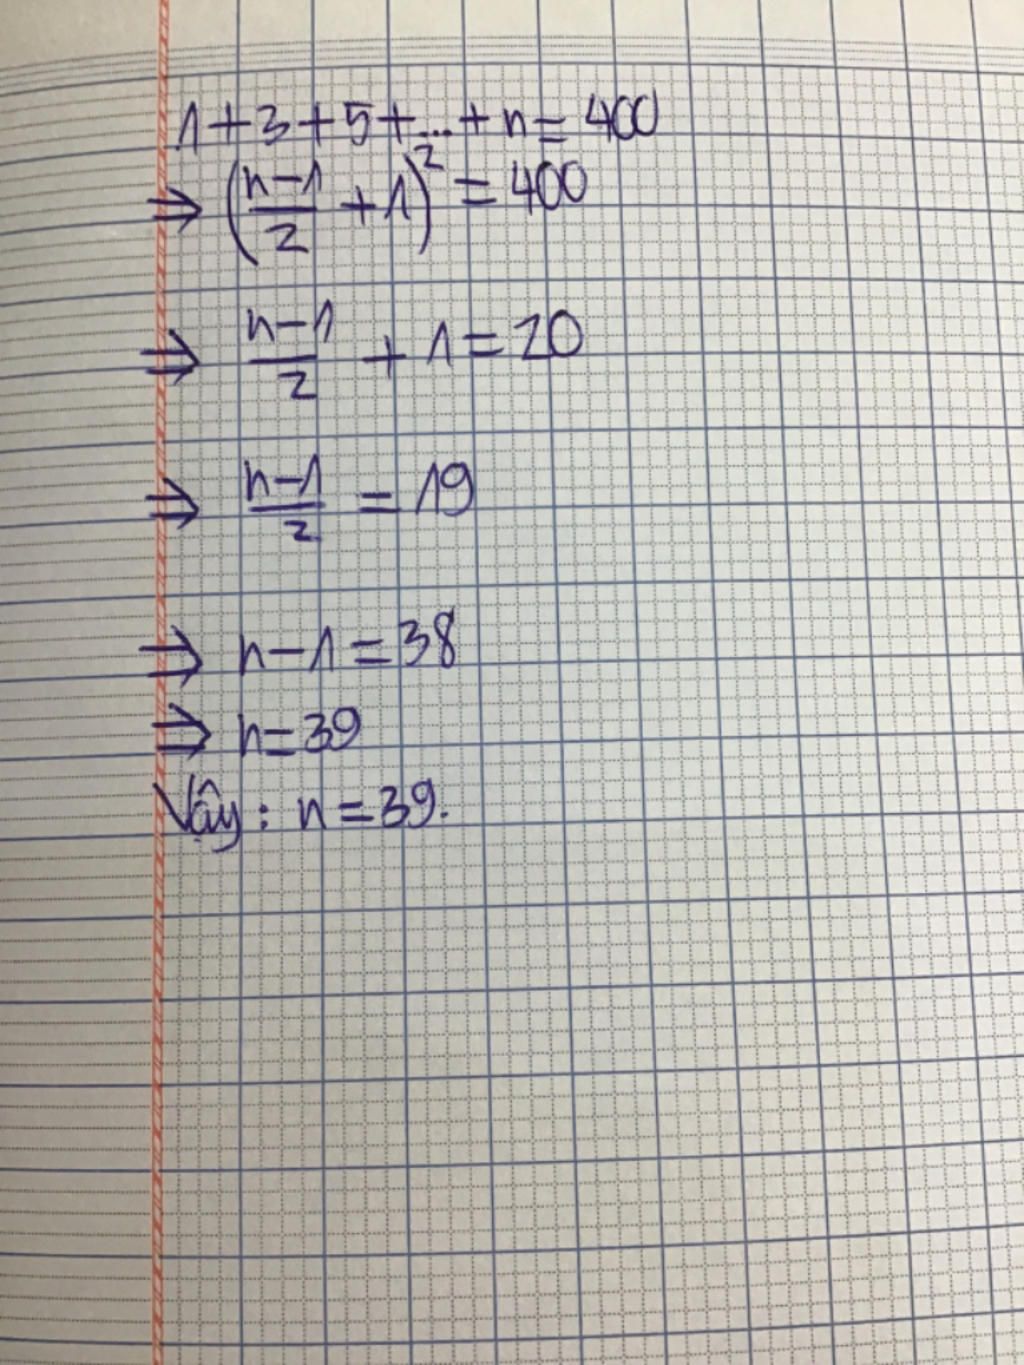 1+3+5+...+n=400
⇒ (n-1/2 + 1)² = 400
⇒ n-1/2 + 1 = 20
⇒ n-1/2 = 19
⇒ n-1=38
⇒ n=39
Vậy: n=39.